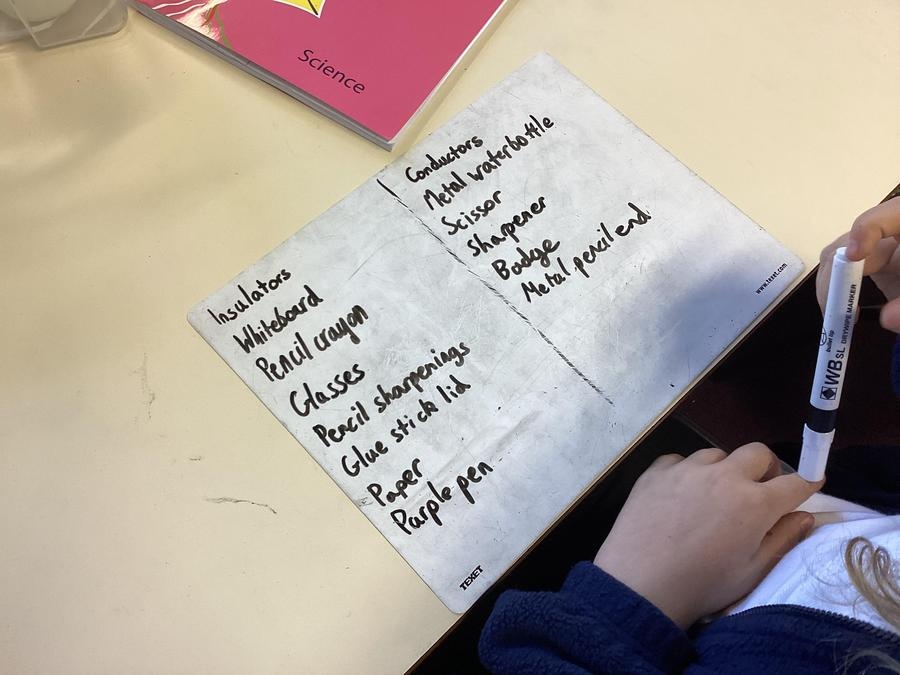 Science
Insulators
Whiteboard
Pencil crayon
Glasses
Pencil sharpenings
Glue stick lid
Paper
Purple pen
Conductors
Metal waterbottle
Scissor
Sharpener
Badge
Metal pencil end
www.texet.com
TEXET
WB SL DRYWIPE MARKER
bullet tip